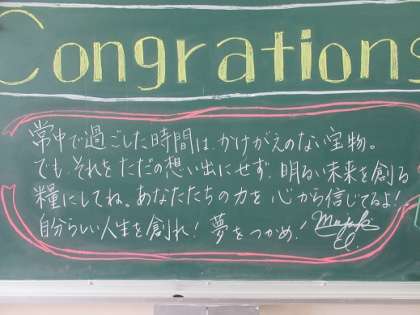 Congrations
常中で過ごした時間は、かけがえのない宝物。
でも、それをただの想い出にせず、明るい未来を創る
糧にしてね。あなたたちの力を心から信じてるよ!
自分らしい人生を創れ!夢をつかめ!